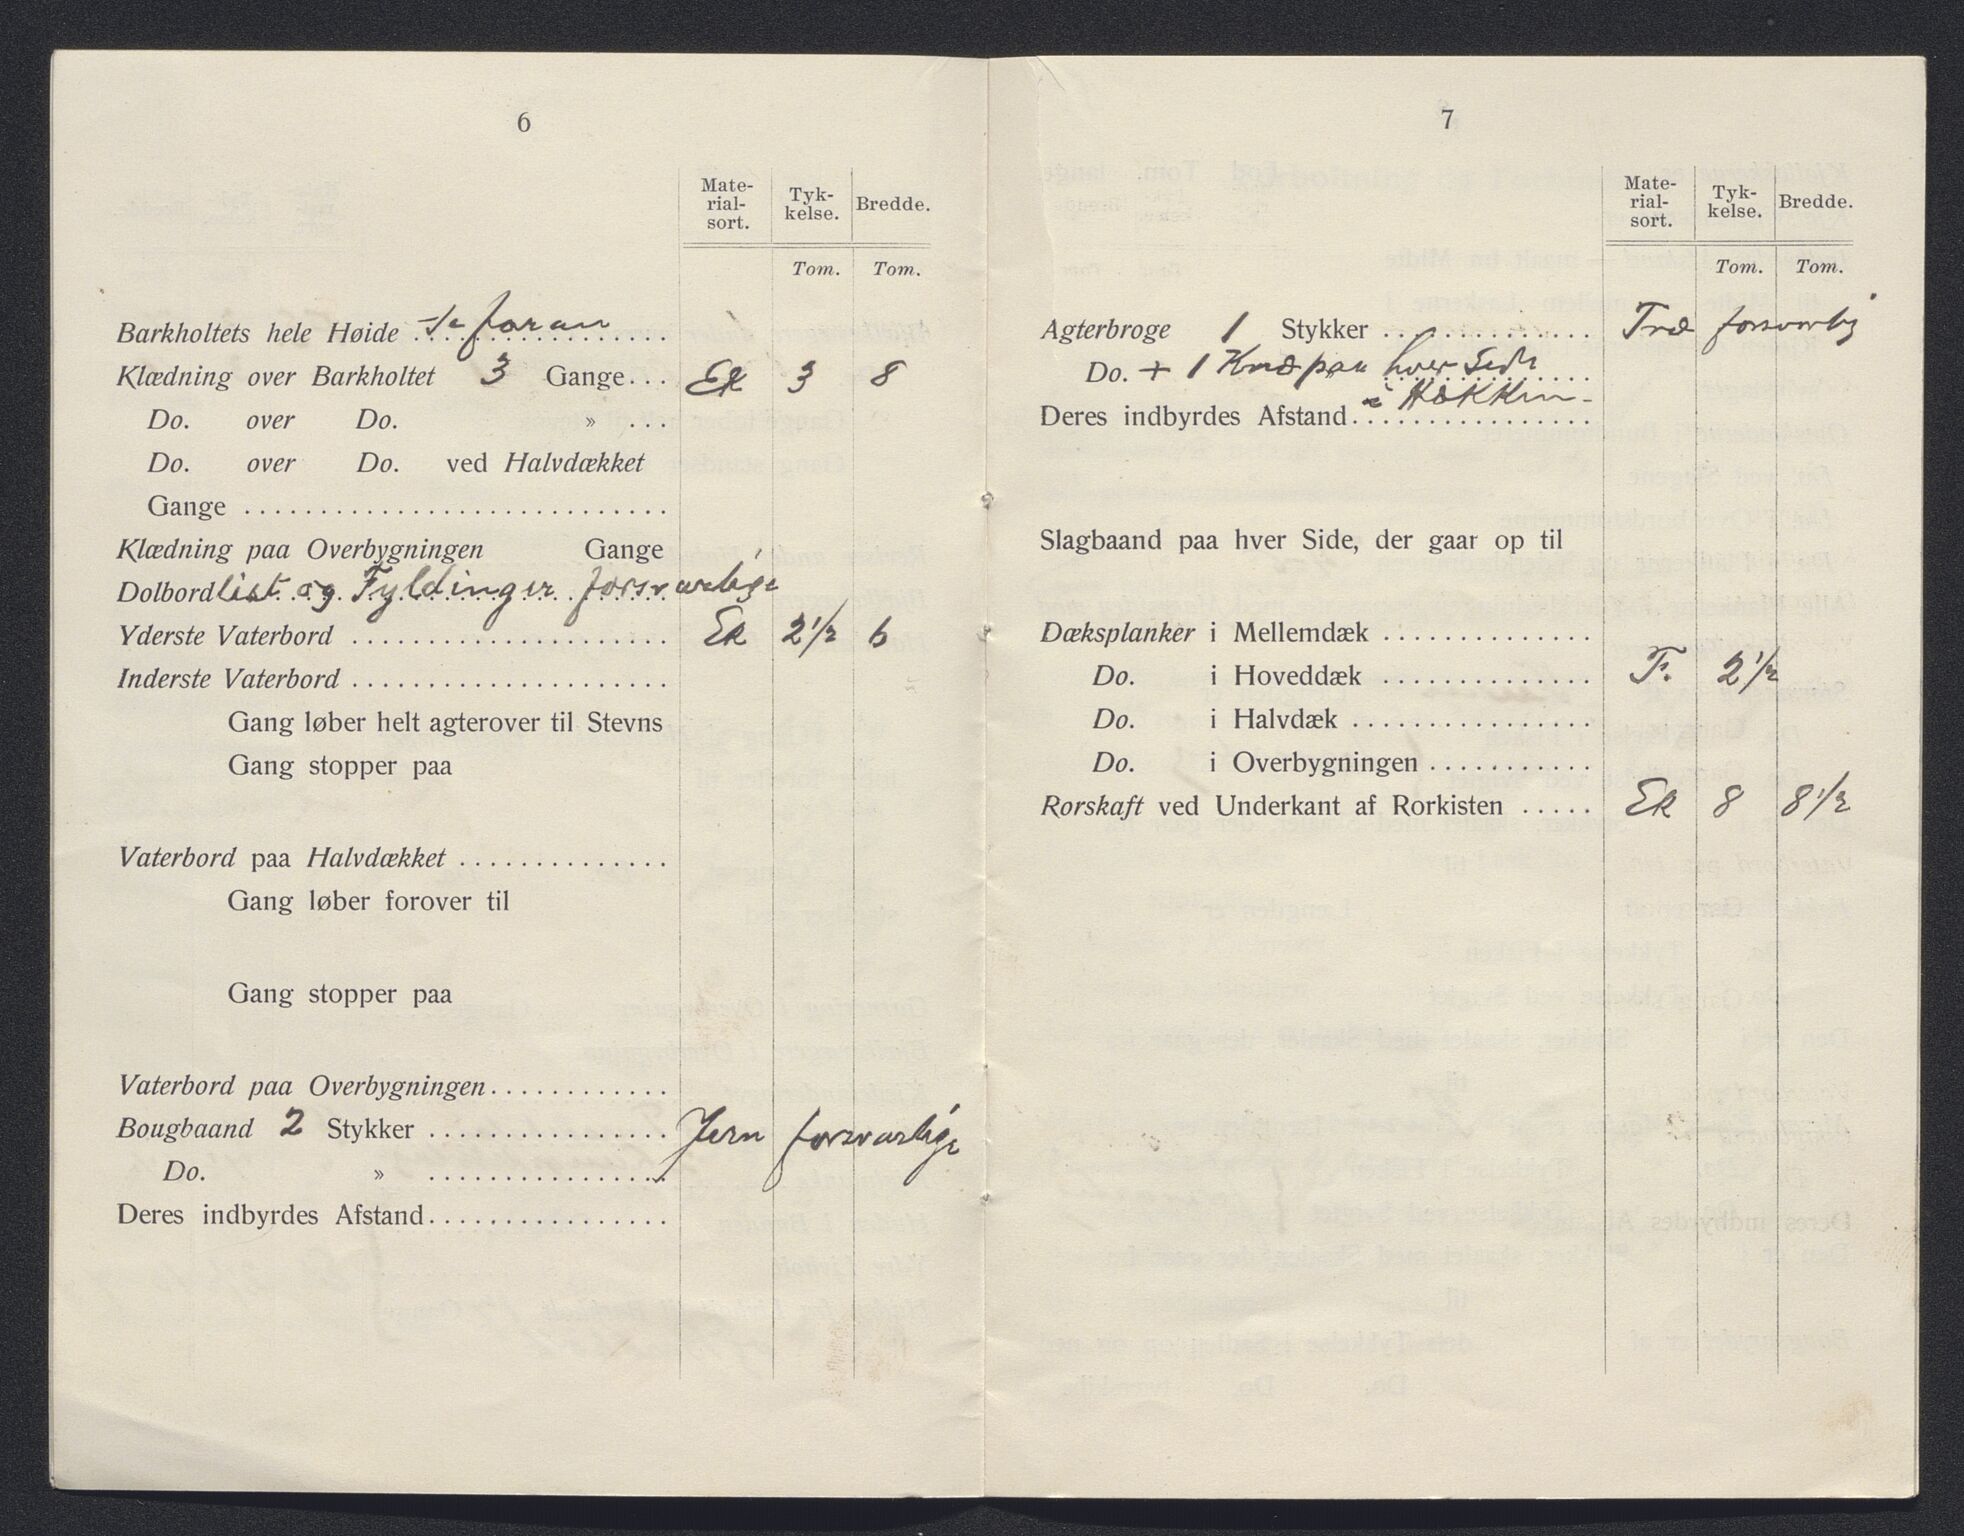 6
Mate-
rial-
sort.
Tyk-
kelse.
Bredde.
Tom. Tom.
Barkholtets hele Høide se foran
Klædning over Barkholtet 3 Gange... Ek 3 8
Do. over Do. » ...
Do. over Do. ved Halvdækket
Gange
Klædning paa Overbygningen Gange
Dolbord list og Fyldinger forsvarlige
Yderste Vaterbord Ek 2 1/2 6
Inderste Vaterbord
Gang løber helt agterover til Stevns
Gang stopper paa
Vaterbord paa Halvdækket
Gang løber forover til
Gang stopper paa
Vaterbord paa Overbygningen
Bougbaand 2 Stykker Jern forsvarlige
Do. »
Deres indbyrdes Afstand
7
Mate-
rial-
sort.
Tyk-
kelse.
Bredde.
Tom. Tom.
Agterbroge 1 Stykker Træ forsvarlig
Do. + 1 Knæ paa hver Side
i Hækken
Deres indbyrdes Afstand
Slagbaand paa hver Side, der gaar op til
Dæksplanker i Mellemdæk
Do. i Hoveddæk F. 2 1/2
Do. i Halvdæk
Do. i Overbygningen
Rorskaft ved Underkant af Rorkisten Ek 8 8 1/2